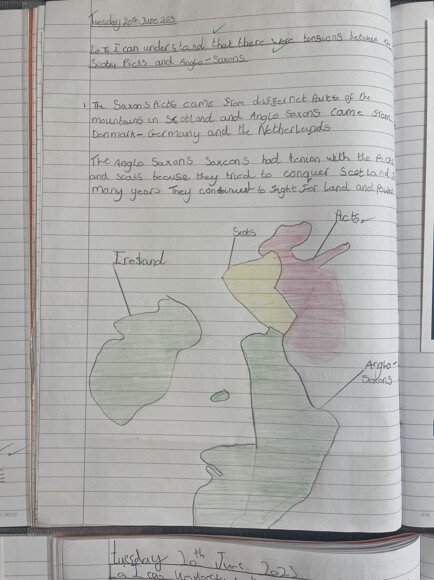 Tuesday 20th June 203
Lo: I can understand that there were tensions between
Scots Picts and Anglo-Saxons.
1. The Saxons Picts came from differnet Parts of the
mountains in Scotland and Anglo Saxons came from
Denmark- Germany and the Netherlands
The Anglo Saxons Saxcons had tension with the Picts
and scots becuse they tried to conquer Scotland
many years They continued to fight for land and
Scots
Picts
Ireland
Anglo-
Saxons
tuesday 20th June 2023
Lo I can